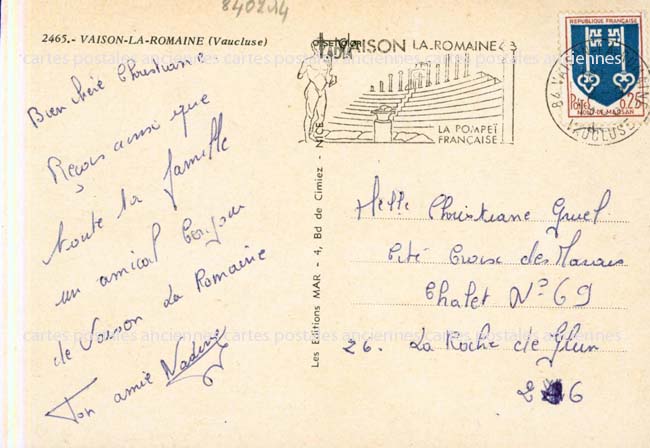 840214
2465.- VAISON-LA-ROMAINE (Vaucluse)
Bien chère Christiane
Reçois ainsi que
toute ta famille
un amical bonjour
de Vaison La Romaine
Ton amie Nadine
Les Editions MAR - 4, Bd de Cimiez - NICE
VAISON LA-ROMAINE
LA POMPEÏ
FRANÇAISE
REPUBLIQUE FRANÇAISE
Postes 0,25
MONT-DE-MARSAN
84 VAISON
VAUCLUSE
Melle Christiane Gruel
Cité Croix des Marais
Chalet N° 69
26. La Roche de Glun
26
cartes postales anciennes cartes postales anciennes cartes postales anciennes
cartes postales anciennes cartes postales anciennes cartes postales anciennes
cartes postales anciennes cartes postales anciennes cartes postales anciennes